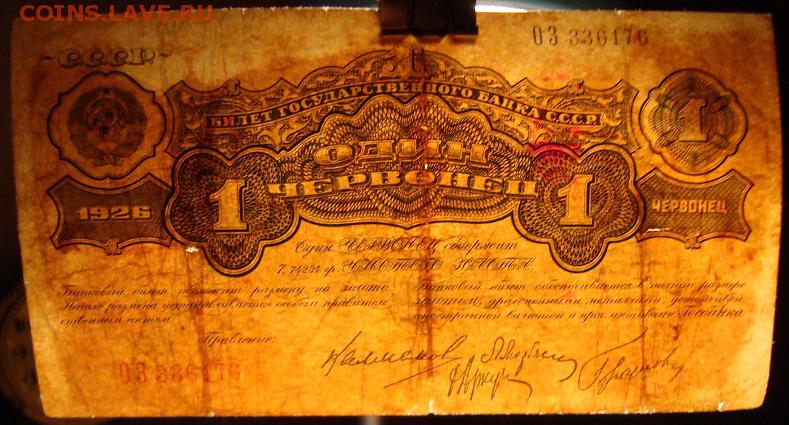 COINS.LAVE.RU
ОЗ 336176
СССР
БИЛЕТ ГОСУДАРСТВЕННОГО БАНКА С.С.С.Р.
1
ОДИН
ЧЕРВОНЕЦ
1 1
1926
ЧЕРВОНЕЦ
Один ЧЕРВОНЕЦ содержит
7,74234 гр. ЧИСТОГО ЗОЛОТА.
Банковый билет подлежит размену на золото.
Начало размена устанавливается особым правитель-
ственным актом
Банковый билет обеспечивается в полном размере
золотом, драгоценными металлами, устойчивой
иностранной валютой и проч. активами Госбанка
Правление:
ОЗ 336176